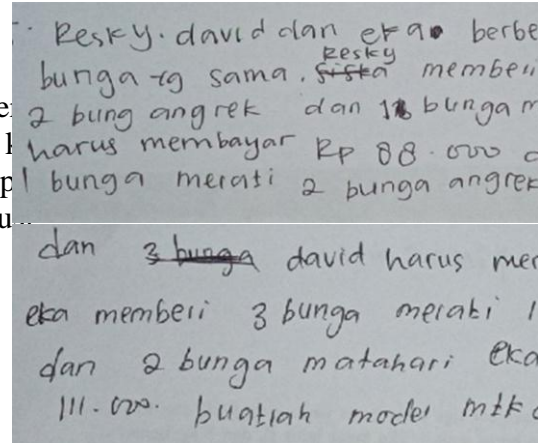 Resky. david dan eka berbe
bunga yg sama. Resky membeli
2 bung angrek dan 1 bunga m
harus membayar Rp 88.000 d
1 bunga merati 2 bunga angrek
dan david harus mem
eka membeli 3 bunga merati 1
dan 2 bunga matahari eka
111.000. buatlah model mtk d